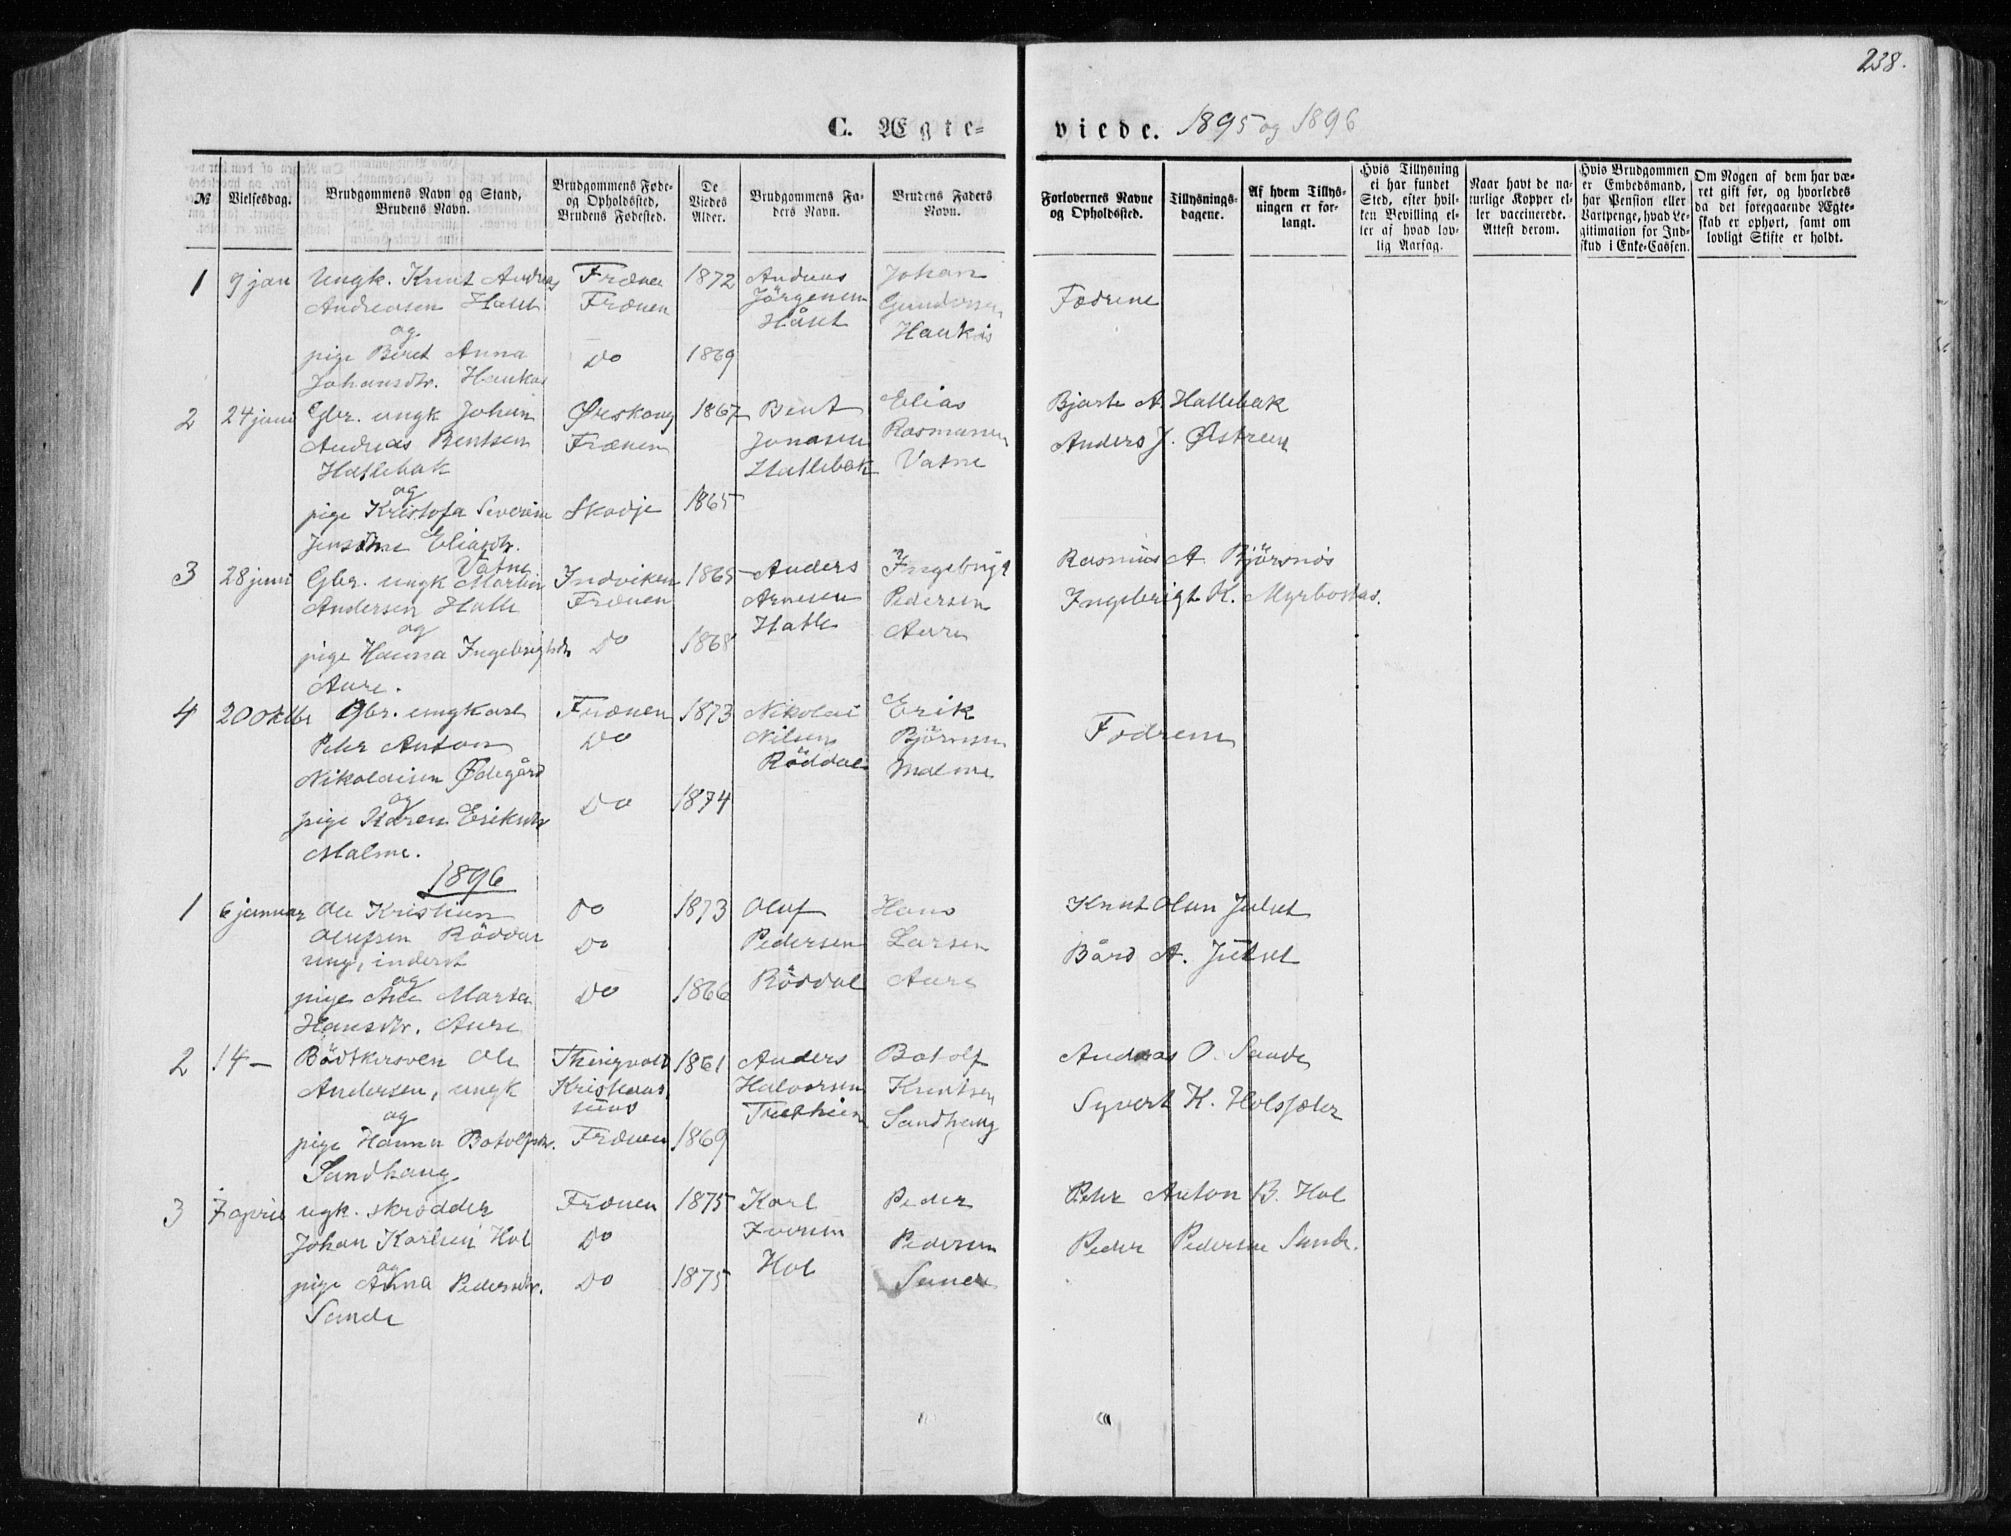 238.
C. Ægte= viede. 1895 og 1896
№
Vielsesdag.
Brudgommens Navn og Stand,
Brudens Navn.
Brudgommens Føde-
og Opholdssted,
Brudens Fødested.
De
Viedes
Alder.
Brudgommens Fa-
ders Navn.
Brudens Faders
Navn.
Forlovernes Navne
og Opholdssted.
Tillysnings-
dagene.
Af hvem Tillys-
ningen er for-
langt.
Hvis Tillysning
ei har fundet
Sted, efter hvil-
ken Bevilling el-
ler af hvad lov-
lig Aarsag.
Naar havt de na-
turlige Kopper el-
ler vaccinerede.
Attest derom.
Hvis Brudgommen
er Embedsmand,
har Pension eller
Vartpenge, hvad Le-
gitimation for Ind-
skud i Enke-Cassen.
Om Nogen af dem har væ-
ret gift før, og hvorledes
da det foregaaende Ægte-
skab er ophørt, samt om
lovligt Skifte er holdt.
1
9 jan
Ungk. Knut Andreas
Andreasen Haset
og
pige Beret Anna
Johansdtr. Haukås
Frænen
Frænen
Do
1872
1869
Andreas
Jörgensen
Håset
Johan
Gundersen
Haukås
Fædrene
2
24 juni
Gbr. ungk Johan
Andreas Bentsen
Hatlebak
og
pige Kristofa Severine
Jensine Eliasdtr.
Vatne
Ørskoug
Frænen
Skodje
1867
1865
Bent
Jonasen
Hatlebak
Elias
Rasmusen
Vatne
Bjarte A. Hatlebak
Anders J. Østrem
3
28 juni
Gbr. ungk Martin
Andersen Hatle
og
pige Hanna Ingebrigtsdtr
Aure.
Indviken
Frænen
Do
1865
1868
Anders
Arnesen
Hatle
Ingebrigt
Pedersen
Aure
Rasmus A. Björsnös
Ingebrigt K. Myrbostad.
4
20 oktbr
Gbr. ungkarl
Peter Anton
Nikolaisen Ødegård
og
pige Karen Eriksdtr
Malme.
Frænen
Do
Do
1873
1874
Nikolai
Nilsen
Röddal
Erik
Björnsen
Malme
Fædrene
1896
1
6 januar
Ole Kristian
Olufsen Röddal
ung, inderst
og
pige Ane Marta
Hansdtr. Aure
Do
Do
Do
1873
1866
Oluf
Pedersen
Röddal
Hans
Larsen
Aure
Knut Olsen Julset
Bård A. Julset
2
14 –
Bödtkersven Ole
Andersen, ungk
og
pige Hanna Botolfsdtr.
Sandhaug
Thingvold
Kristian-
sund
Frænen
1861
1869
Anders
Halvorsen
Botolf
Knutsen
Sandhaug
Andreas O. Sande
Syvert K. Holsjæter
3
7 april
ugk. skrædder
Johan Karlsen Hol
og
pige Anna Pedersdtr.
Sande
Frænen
Do
Do
1875
1875
Karl
Iversen
Hol
Peder
Pedersen
Sande
Peter Anton B. Hol
Peder Pedersen Sande.